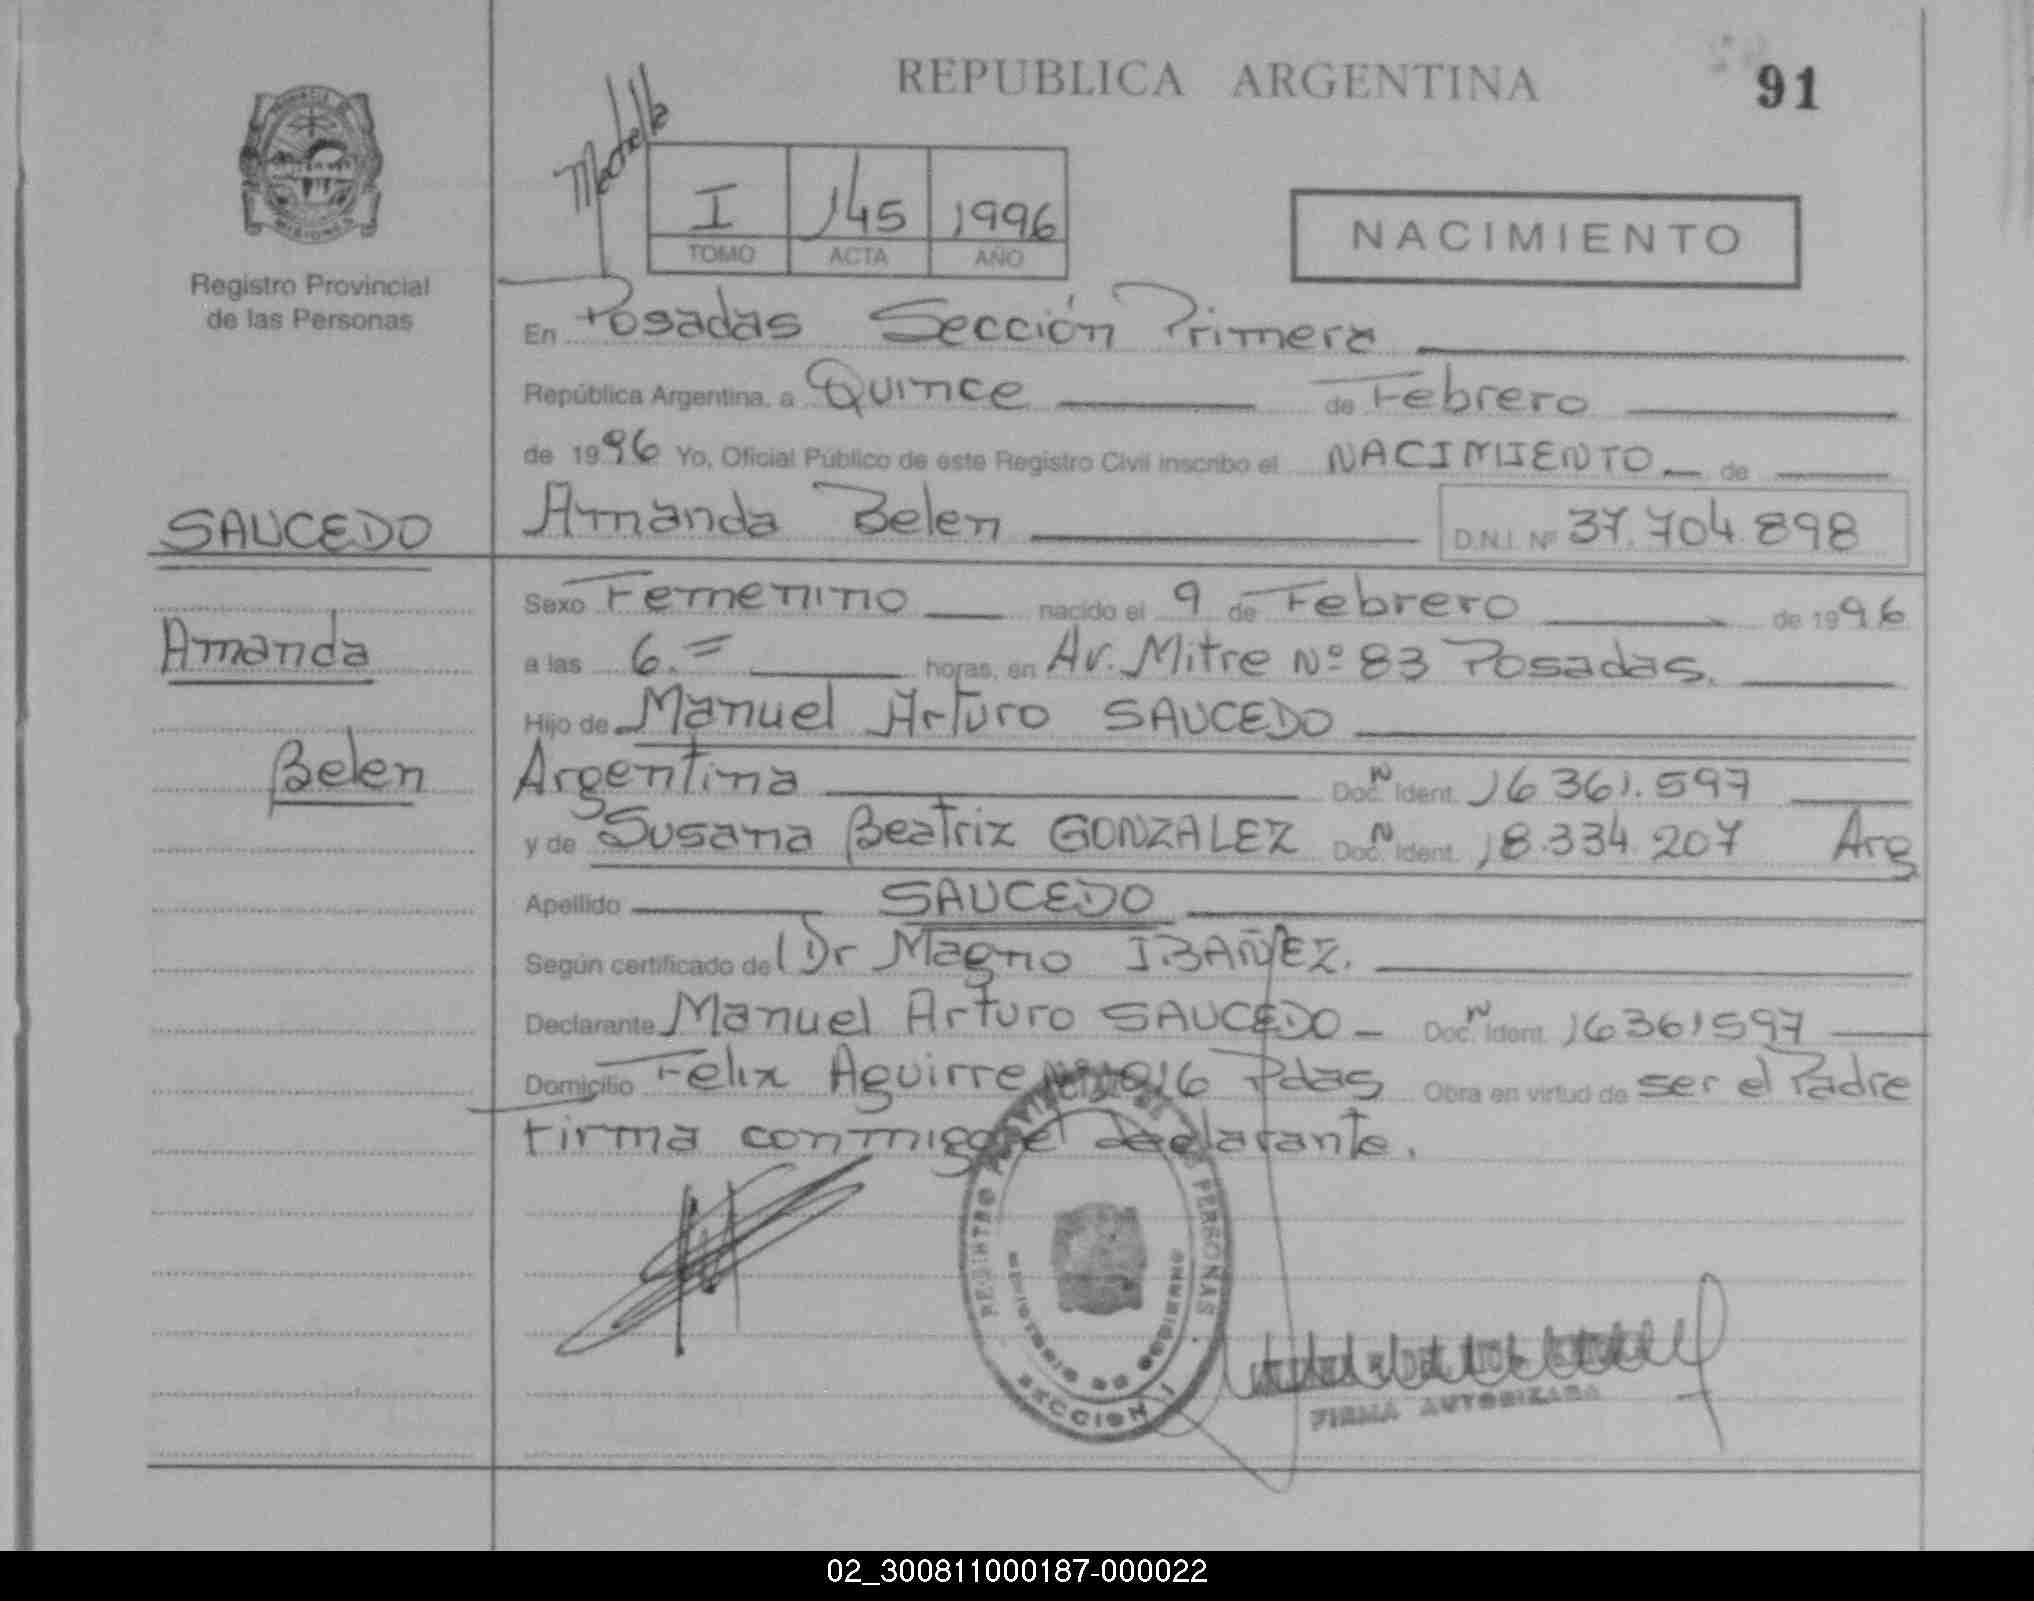 REPUBLICA ARGENTINA
91
I 145 1996
TOMO ACTA AÑO
NACIMIENTO
PROVINCIA DE MISIONES
Registro Provincial
de las Personas
En Posadas Sección Primera
República Argentina, a Quince de Febrero
de 1996 Yo, Oficial Público de este Registro Civil inscribo el NACIMIENTO de
SAUCEDO
Amanda
Belen
Amanda Belen D.N.I. Nº 37.704.898
Sexo Femenino nacido el 9 de Febrero de 1996
a las 6.= horas, en Av. Mitre Nº 83 Posadas.
Hijo de Manuel Arturo SAUCEDO
Argentina Doc. N Ident. 16 361.597
y de Susana Beatriz GONZALEZ Doc. N Ident. 18.334.207 Arg
Apellido SAUCEDO
Según certificado de Dr Magno IBAÑEZ.
Declarante Manuel Arturo SAUCEDO Doc. N Ident. 16361597
Domicilio Felix Aguirre Pdas Obra en virtud de ser el Padre
Firma conmigo el declarante.
REGISTRO PROVINCIAL DE LAS PERSONAS
MINISTERIO DE GOBIERNO
SECCION I
FIRMA AUTORIZADA
02_300811000187-000022